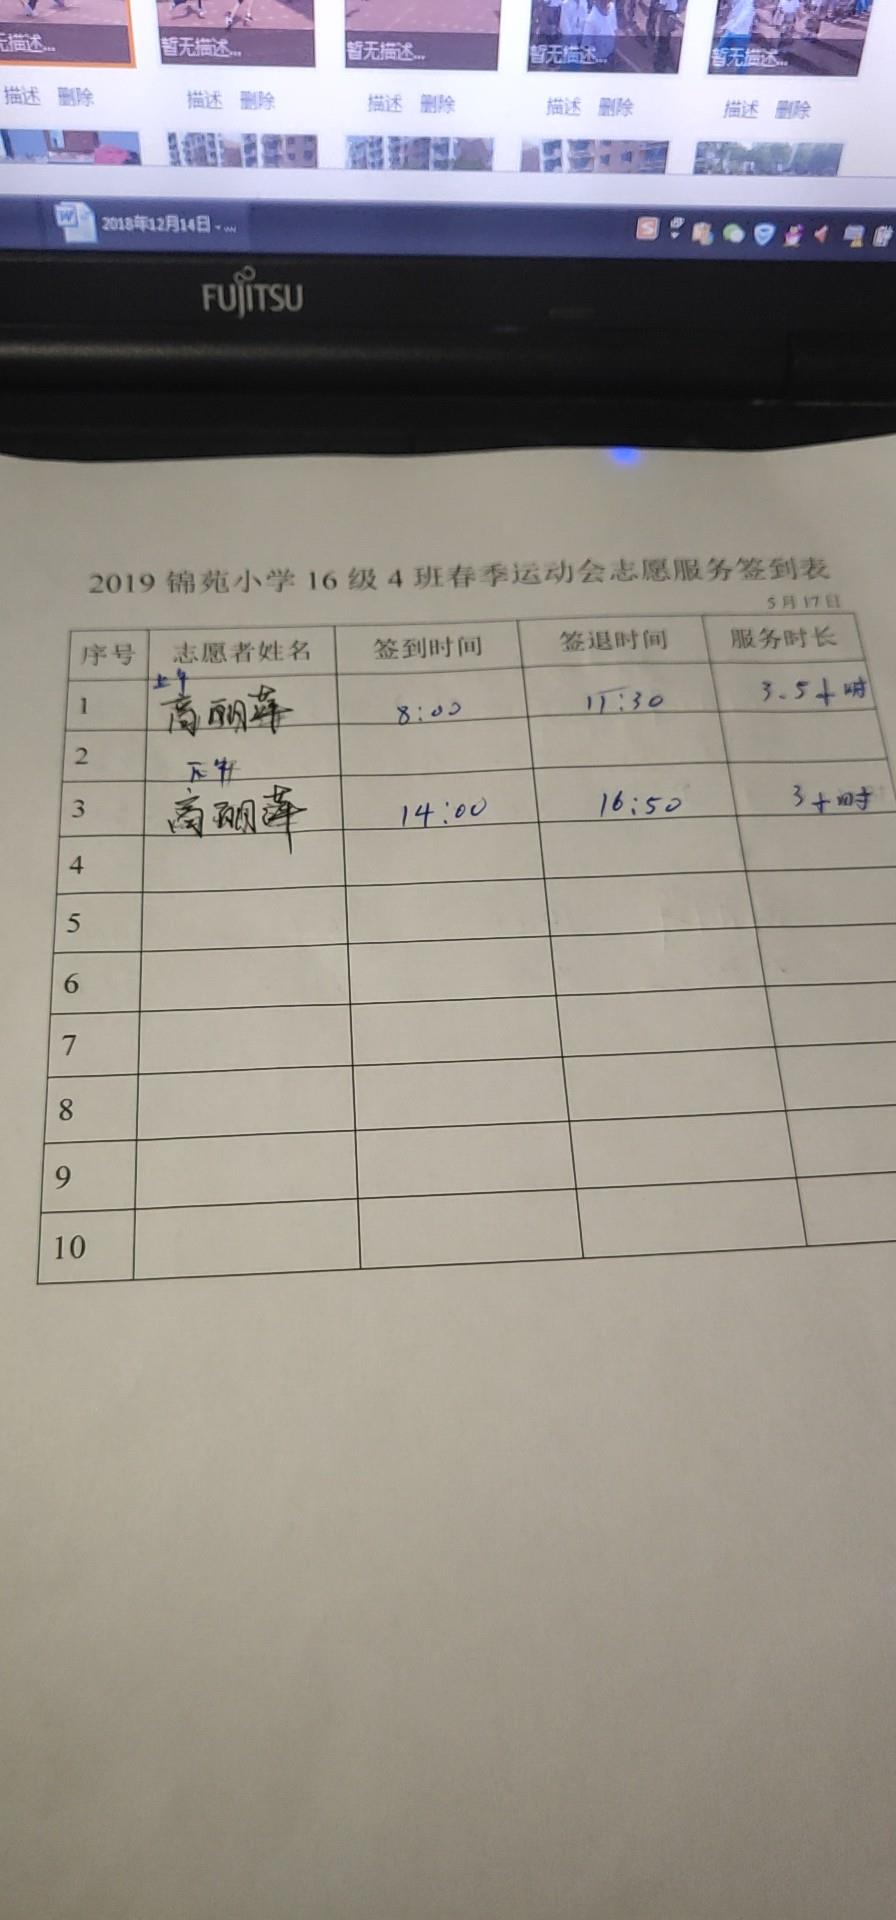 无描述...
暂无描述...
暂无描述...
暂无描述...
暂无描述...
描述 删除
描述 删除
描述 删除
描述 删除
描述 删除
2018年12月14日 - ...
FUJITSU
2019 锦苑小学 16 级 4 班春季运动会志愿服务签到表
5月17日
序号 志愿者姓名 签到时间 签退时间 服务时长
上午
1 高丽萍 8:00 11:30 3.5小时
2
下午
3 高丽萍 14:00 16:50 3小时
4
5
6
7
8
9
10